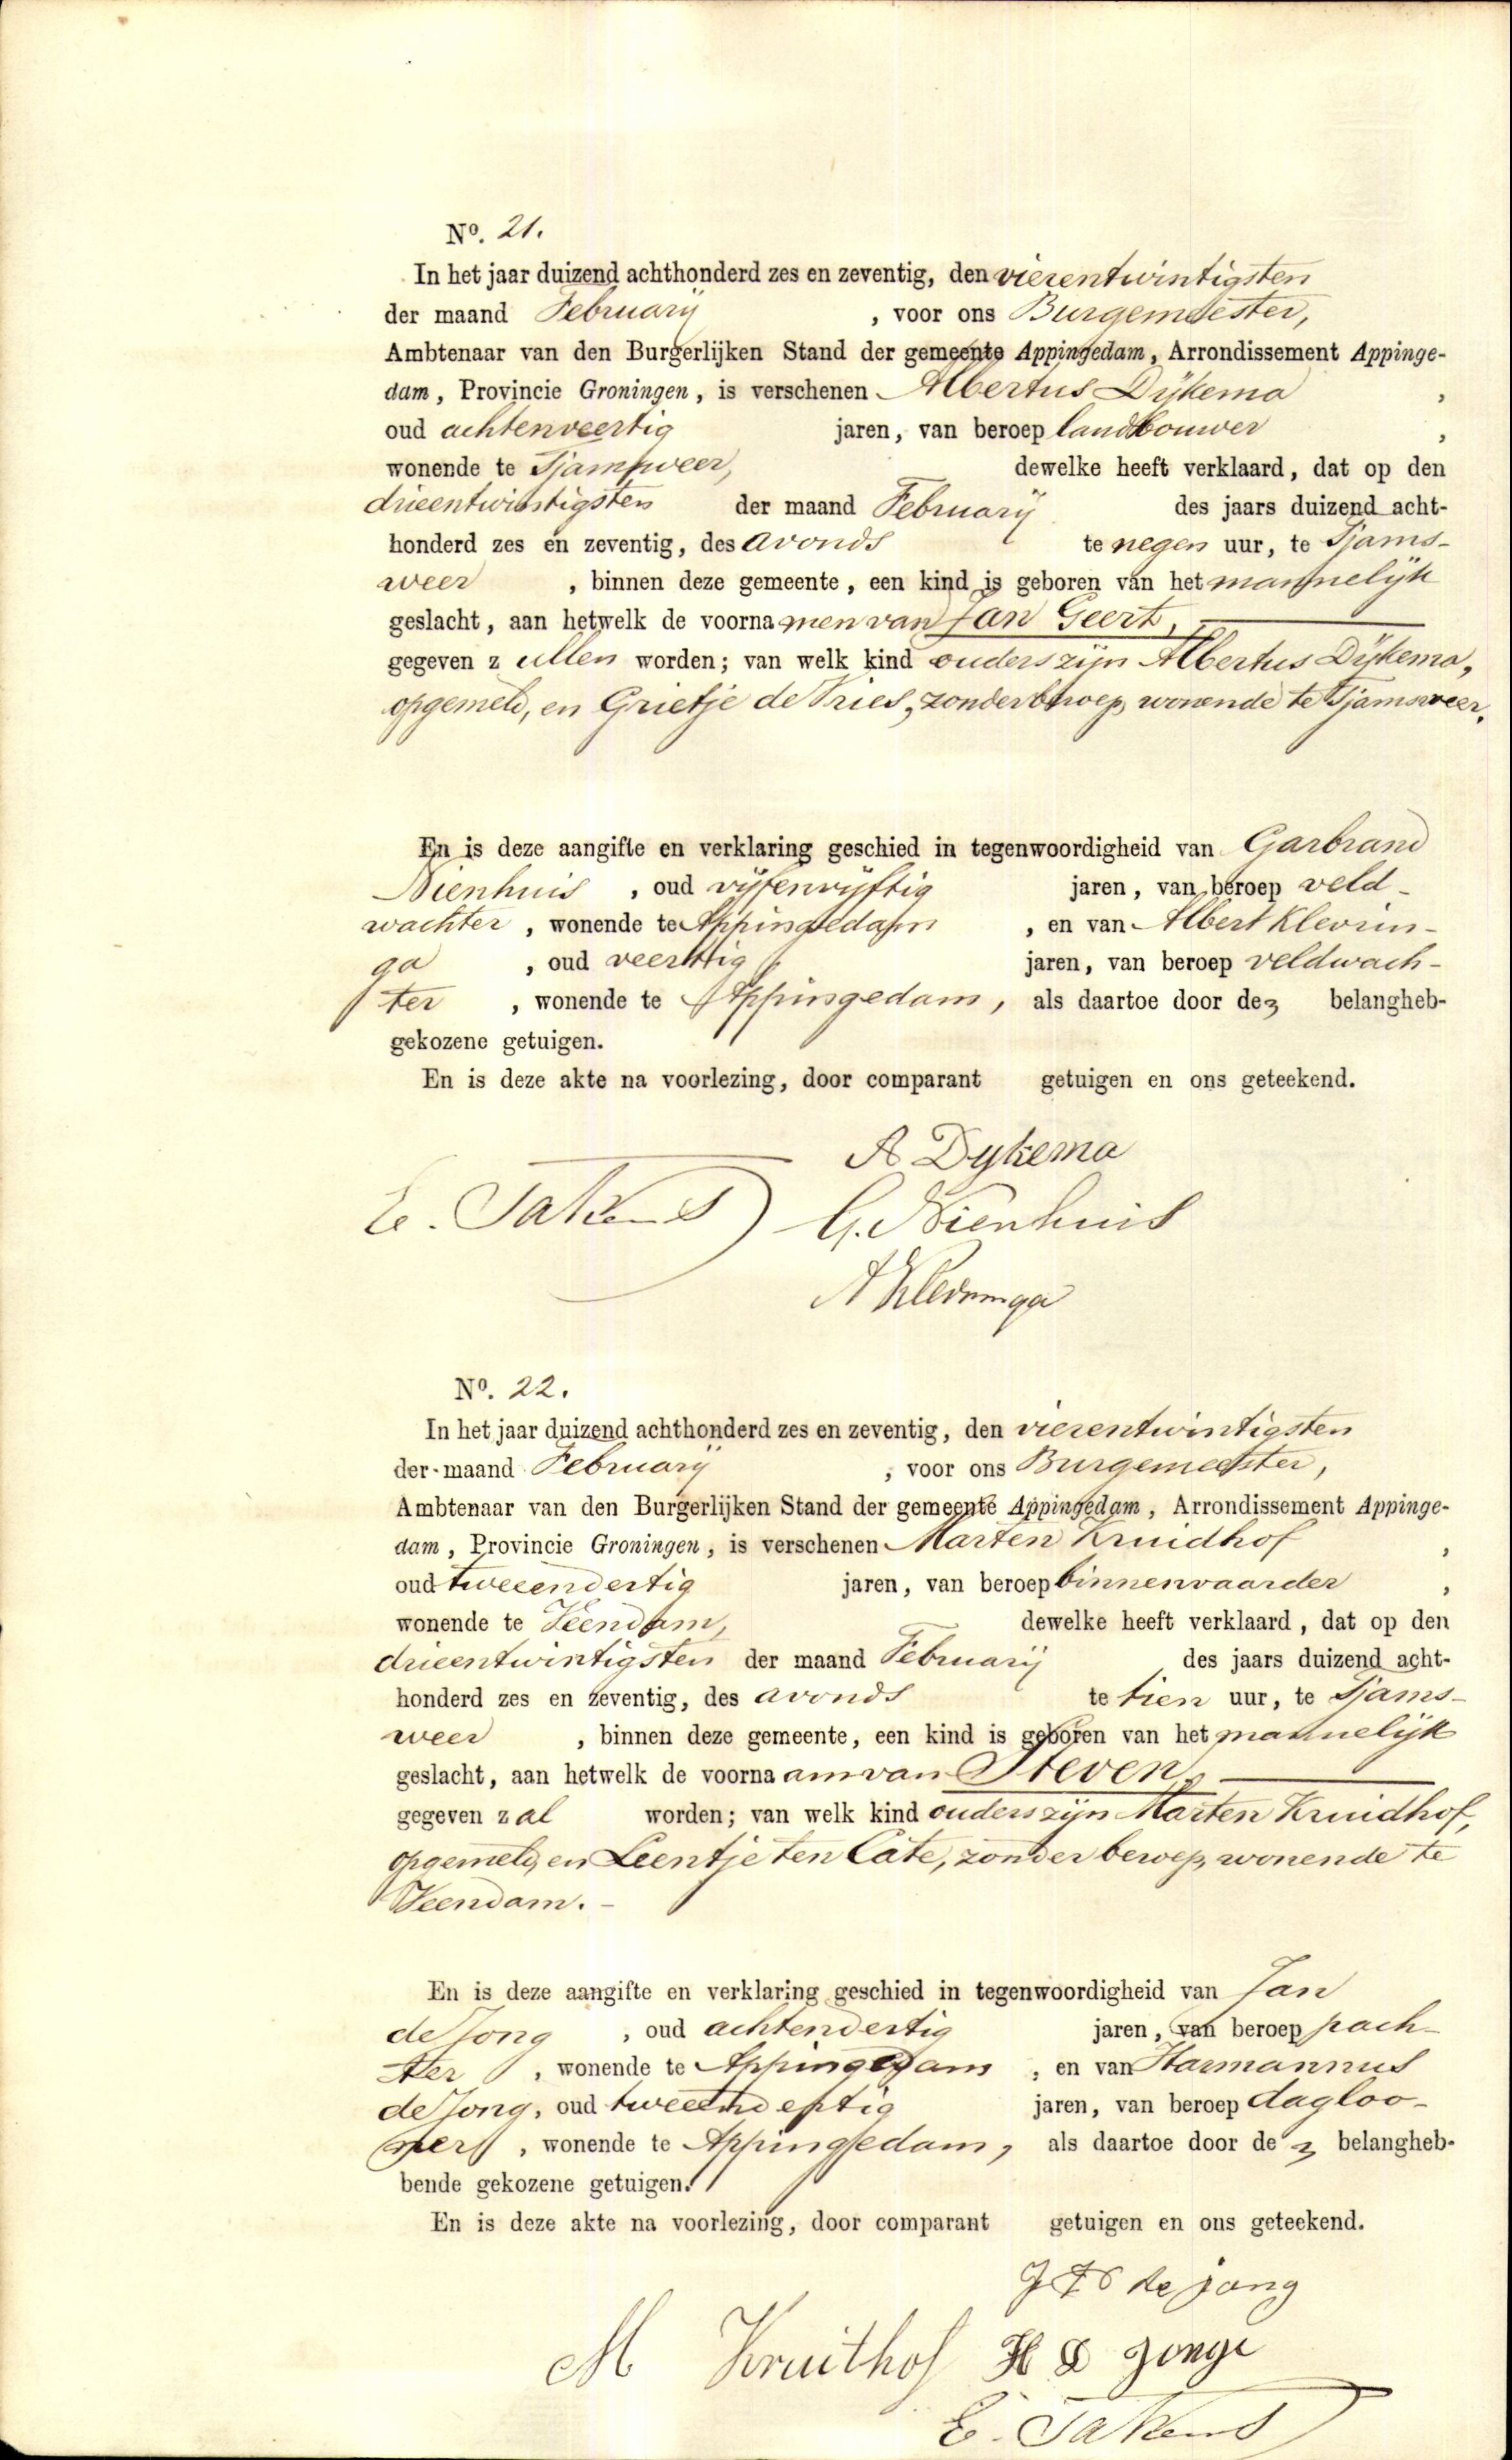 No. 21.
In het jaar duizend achthonderd zes en zeventig, den vierentwintigsten
der maand Februarij , voor ons Burgemeester,
Ambtenaar van den Burgerlijken Stand der gemeente Appingedam, Arrondissement Appinge-
dam, Provincie Groningen, is verschenen Albertus Dijkema ,
oud achtenveertig jaren, van beroep landbouwer ,
wonende te Tjamsweer, dewelke heeft verklaard, dat op den
drieentwintigsten der maand Februarij des jaars duizend acht-
honderd zes en zeventig, des avonds te negen uur, te Tjams-
weer , binnen deze gemeente, een kind is geboren van het mannelijk
geslacht, aan hetwelk de voornamen van Jan Geert,
gegeven zullen worden; van welk kind ouders zijn Albertus Dijkema,
opgemeld, en Grietje de Vries, zonder beroep, wonende te Tjamsweer.
En is deze aangifte en verklaring geschied in tegenwoordigheid van Garbrand
Nienhuis , oud vijfenvijftig jaren, van beroep veld-
wachter , wonende te Appingedam , en van Albert Klevrin-
ga , oud veertig jaren, van beroep veldwach-
ter , wonende te Appingedam, als daartoe door de belangheb-
gekozene getuigen.
En is deze akte na voorlezing, door comparant getuigen en ons geteekend.
A Dykema
E. Takens G. Nienhuis
A Klevringa
No. 22.
In het jaar duizend achthonderd zes en zeventig, den vierentwintigsten
der maand Februarij , voor ons Burgemeester,
Ambtenaar van den Burgerlijken Stand der gemeente Appingedam, Arrondissement Appinge-
dam, Provincie Groningen, is verschenen Marten Kruidhof ,
oud tweeendertig jaren, van beroep binnenvaarder ,
wonende te Veendam, dewelke heeft verklaard, dat op den
drieentwintigsten der maand Februarij des jaars duizend acht-
honderd zes en zeventig, des avonds te tien uur, te Tjams-
weer , binnen deze gemeente, een kind is geboren van het mannelijk
geslacht, aan hetwelk de voornaam van Steven,
gegeven zal worden; van welk kind ouders zijn Marten Kruidhof,
opgemeld, en Leentje ten Cate, zonder beroep, wonende te
Veendam.
En is deze aangifte en verklaring geschied in tegenwoordigheid van Jan
de Jong , oud achtendertig jaren, van beroep pach-
ter , wonende te Appingedam , en van Harmannus
de Jong, oud jaren, van beroep dagloo-
ner , wonende te Appingedam, als daartoe door de belangheb-
bende gekozene getuigen.
En is deze akte na voorlezing, door comparant getuigen en ons geteekend.
de jong
M Kruithof H D Jonge
E. Takens